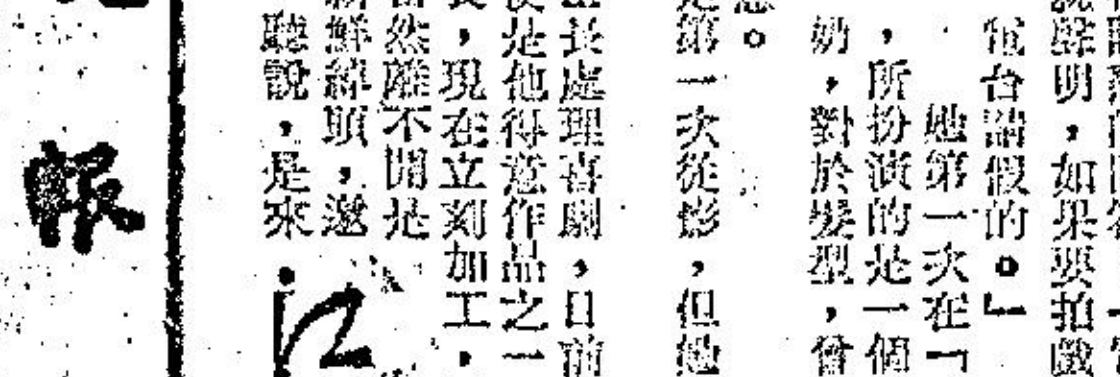 明，如果要拍戲
電台請假的。」
她第一次在「
，所扮演的是一個
奶，對於髮型，曾
。
第一次從影，但她
長處理喜劇，目前
是他得意作品之一
，現在立刻加工，
然離不開是
新鮮綽頭，邀
聽說，是來
江
恨